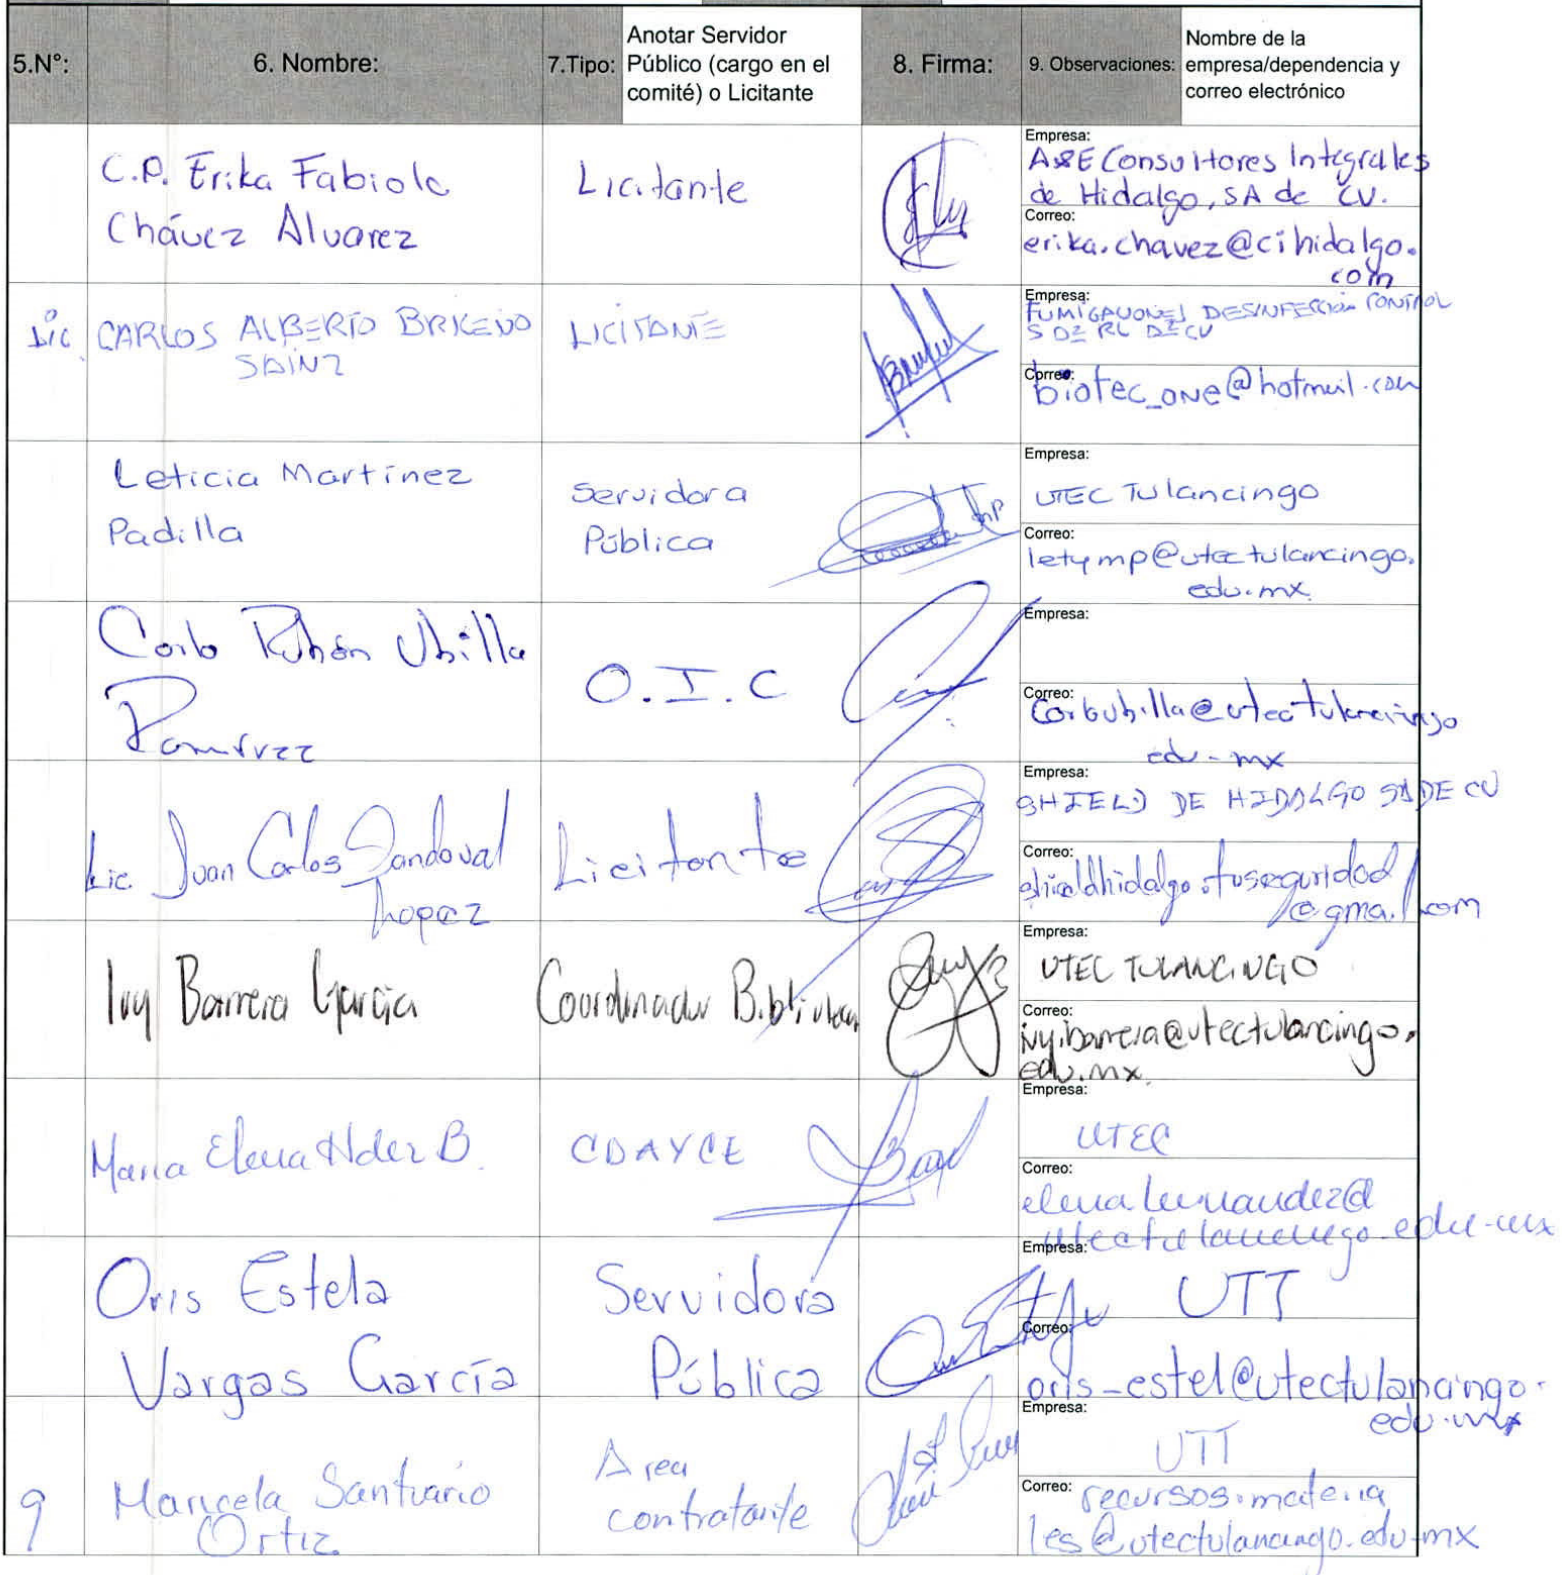 5.N°:
6. Nombre:
7.Tipo:
Anotar Servidor
Público (cargo en el
comité) o Licitante
8. Firma:
9. Observaciones:
Nombre de la
empresa/dependencia y
correo electrónico
C.P. Erika Fabiola
Chávez Alvarez
Licitante
Empresa:
A&E Consultores Integrales
de Hidalgo, SA de CV.
Correo:
erika.chavez@cihidalgo.
com
Lic
CARLOS ALBERTO BRICEÑO
SAINZ
LICITANTE
Empresa:
FUMIGACIONES DESINFECCION CONTROL
S DE RL DE CV
Correo:
biotec_one@hotmail.com
Leticia Martínez
Padilla
Servidora
Pública
Empresa:
UTEC Tulancingo
Correo:
letymp@utectulancingo.
edu.mx.
Rubén Ubilla
Ramírez
O.I.C
Empresa:
Correo:
edu-mx
Lic Juan Carlos Sandoval
Lopez
Licitante
Empresa:
SHIELD DE HIDALGO SA DE CV
Correo:
shieldhidalgo.tuseguridad
@gmail.com
Ivy Barrera García
Coordinador
Empresa:
UTEC TULANCINGO
Correo:
ivy.barrera@utectulancingo.
edu.mx.
Maria Elena Hdez B.
CDAYCE
Empresa:
UTEC
Correo:
elena.hernandez@
utectulancingo.edu.mx
Oris Estela
Vargas García
Servidora
Pública
Empresa:
UTT
Correo:
oris_estel@utectulancingo.
edu.mx
9
Maricela Santuario
Ortiz
Area
contratante
Empresa:
UTT
Correo:
recursos.materia
les@utectulancingo.edu.mx